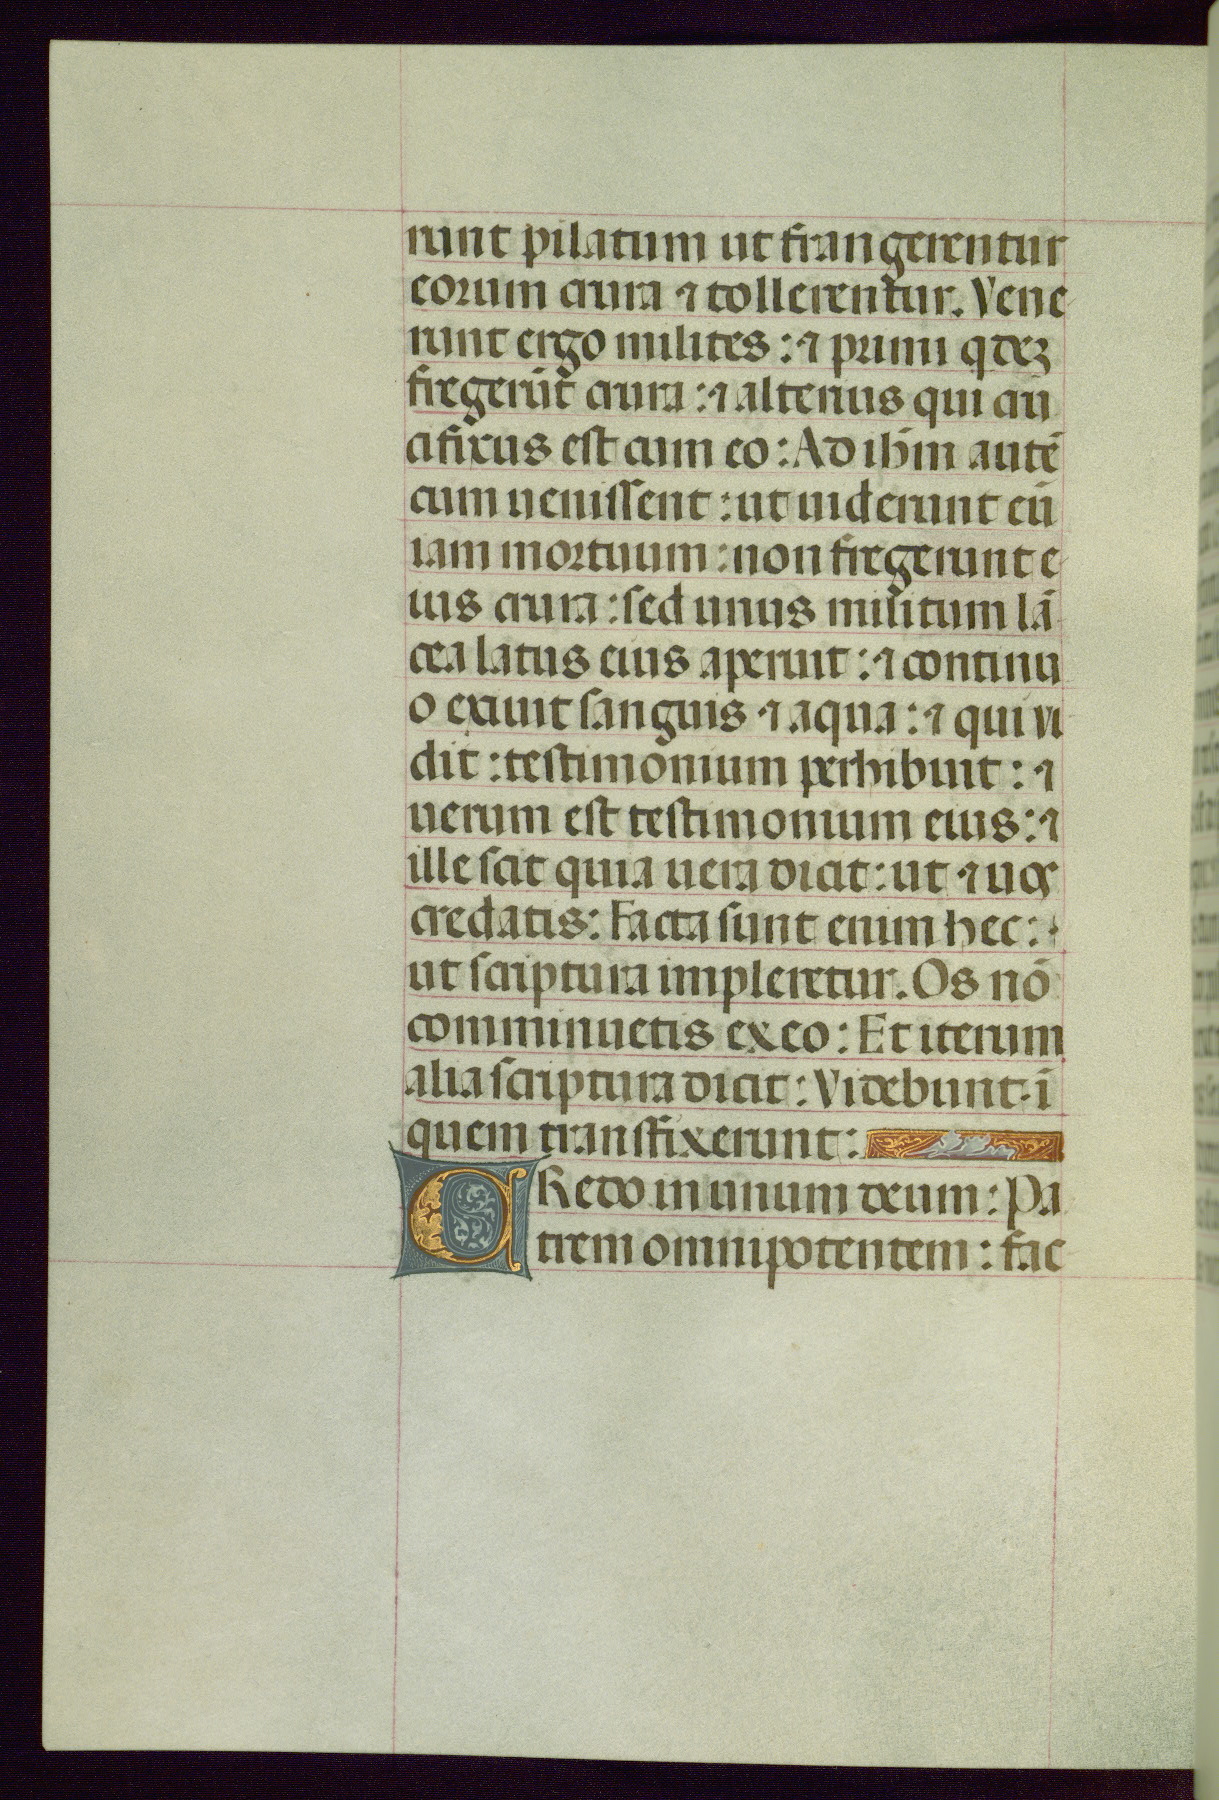 runt pilatum ut frangerentur
eorum crura ⁊ tollerentur. Vene
runt ergo milites : ⁊ primi qdeꝫ
fregerūt crura : ⁊ alterius qui cru
cifixus est cum eo : Ad ihm̄ autē
cum uenissent : ut uiderunt eū
iam mortuum : non fregerunt e
ius crura : sed unus militum lā
cea latus eius aperuit : ⁊ continu
o exiuit sanguis ⁊ aqua : ⁊ qui vi
dit : testimonium perhibuit : ⁊
uerum est testimonium eius : ⁊
ille scit quia uera dicit : ut ⁊ uos
credatis : Facta sunt enim hec :
ut scriptura impleretur. Os nō
comminuetis ex eo : Et iterum
alia scriptura dicit : Videbunt ī
quem transfixerunt :
CRedo in unum deum : Pa
trem omnipotentem : fac